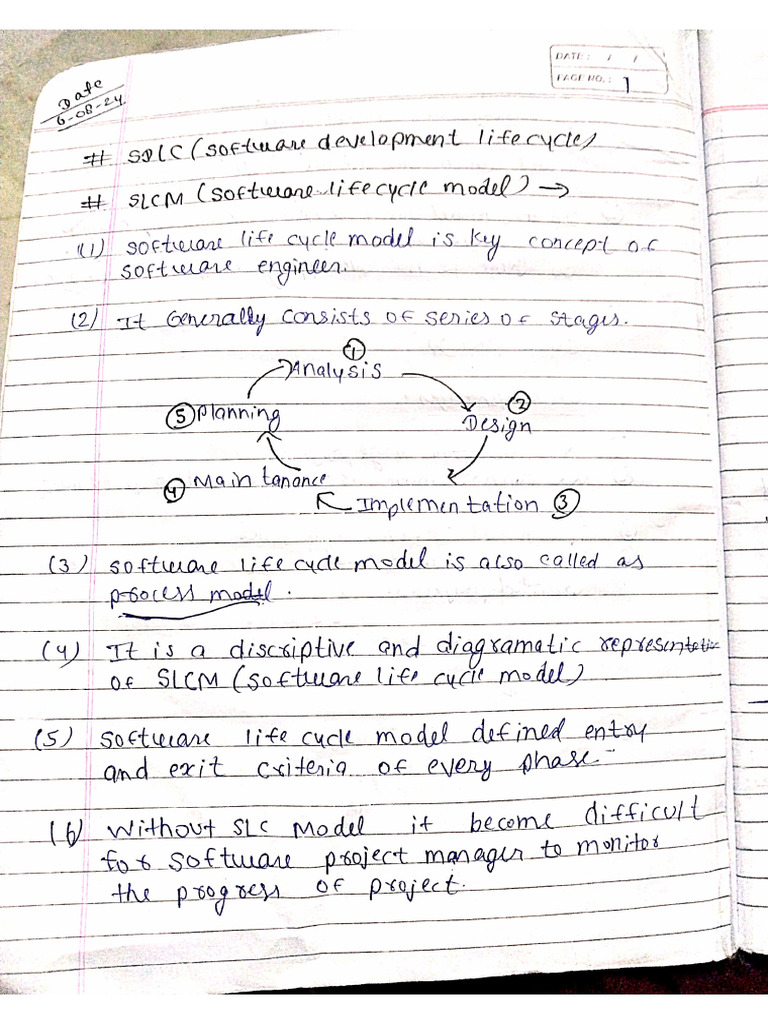 DATE: / /
PAGE NO.: 1
Date
6-08-24.
# SDLC (Software development life cycle)
# SLCM (Software lifecycle model) →
(1) software life cycle model is key concept of
software engineer.
(2) It Generally consists of series of stages.
①
Analysis
⑤ planning
②
Design
④ Maintanance
Implementation ③
(3) software life cycle model is also called as
process model.
(4) It is a discriptive and diagramatic representation
of SLCM (Software life cycle model)
(5) software life cycle model defined entry
and exit criteria of every phase.
(6) Without SLC Model it become difficult
for software project manager to monitor
the progress of project.